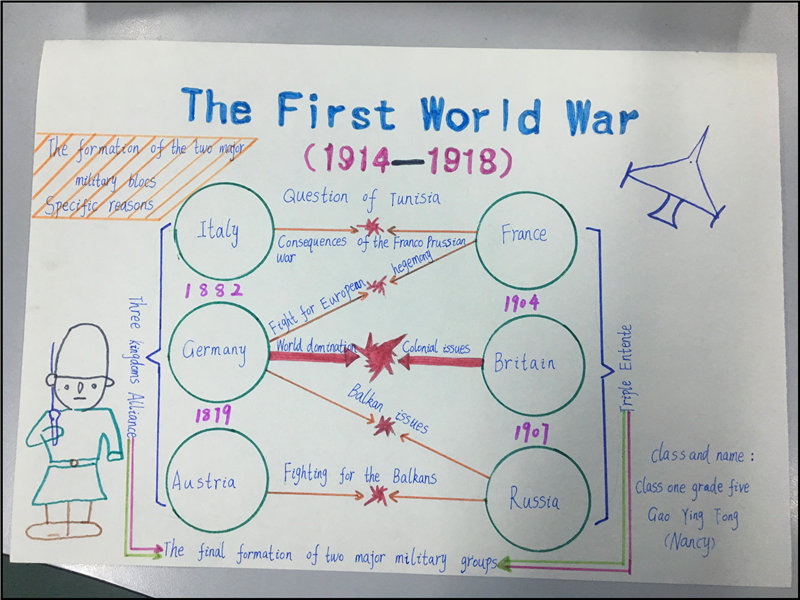 The First World War
(1914—1918)
The formation of the two major
military blocs
Specific reasons
Question of Tunisia
Italy
France
Consequences of the Franco Prussian
war
1882
1904
Fight for European hegemony
Germany
World domination
Colonial issues
Britain
1879
1907
Balkan issues
Austria
Fighting for the Balkans
Russia
Three kingdoms Alliance
Triple Entente
The final formation of two major military groups
Class and name :
Class one grade five
Gao Ying Tong
(Nancy)